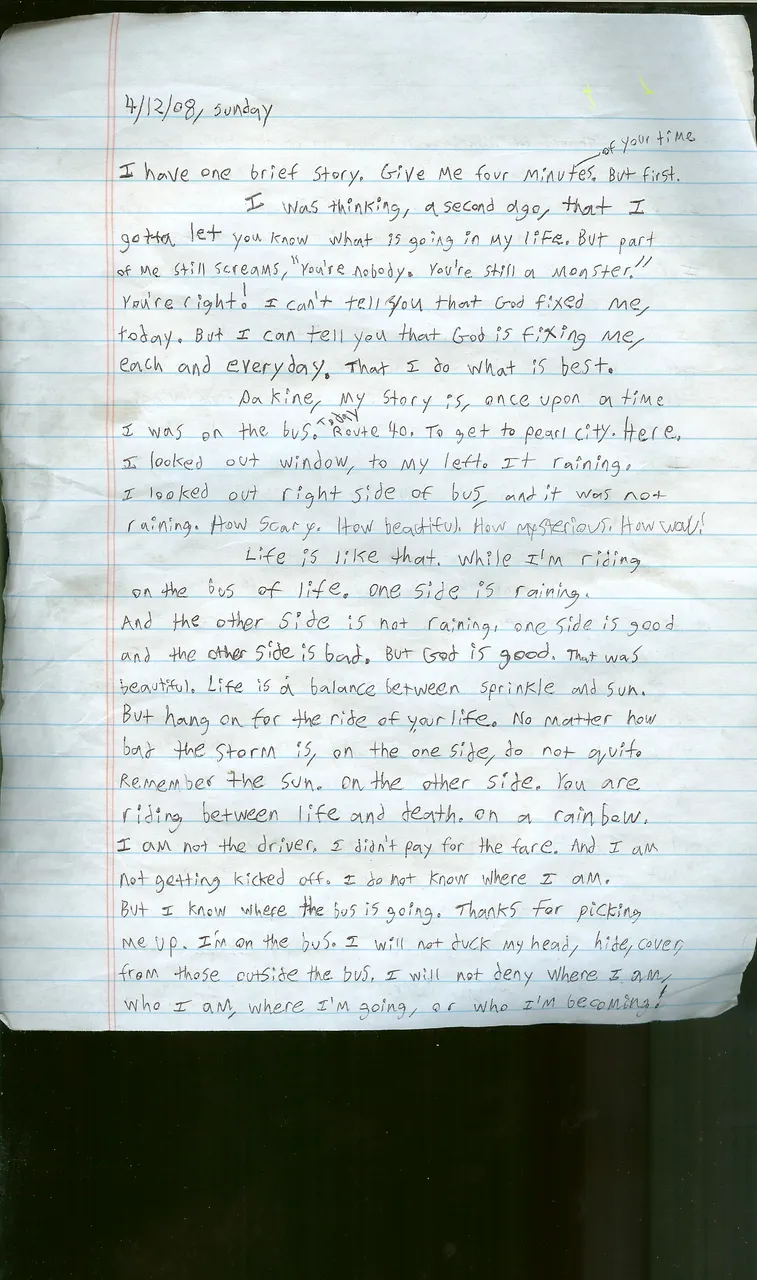 4/12/08, sunday
of your time
I have one brief story. Give me four minutes. But first.
I was thinking, a second ago, that I
gotta let you know what is going in my life. But part
of me still screams, "You're nobody. You're still a monster."
You're right! I can't tell you that God fixed me,
today. But I can tell you that God is fixing me,
each and everyday. That I do what is best.
Da kine, my story is, once upon a time
Today
I was on the bus. Route 40. To get to pearl city. Here,
I looked out window, to my left. It raining.
I looked out right side of bus, and it was not
raining. How scary. How beautiful. How mysterious. How wow!
Life is like that. While I'm riding
on the bus of life. one side is raining.
And the other side is not raining. one side is good
and the other side is bad. But God is good. That was
beautiful. Life is a balance between sprinkle and sun.
But hang on for the ride of your life. No matter how
bad the storm is, on the one side, do not quit.
Remember the sun. on the other side. You are
riding between life and death. on a rainbow.
I am not the driver. I didn't pay for the fare. And I am
not getting kicked off. I do not know where I am.
But I know where the bus is going. Thanks for picking
me up. I'm on the bus. I will not duck my head, hide, cover,
from those outside the bus. I will not deny where I am,
who I am, where I'm going, or who I'm becoming!